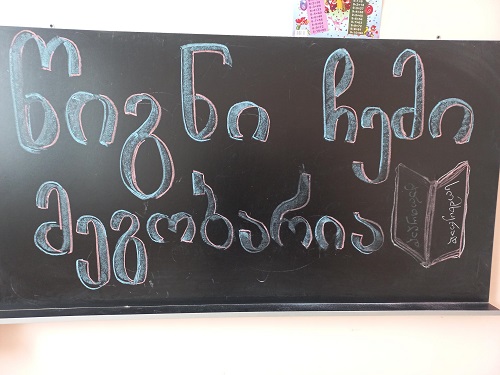 წიგნი ჩემი
მეგობარია